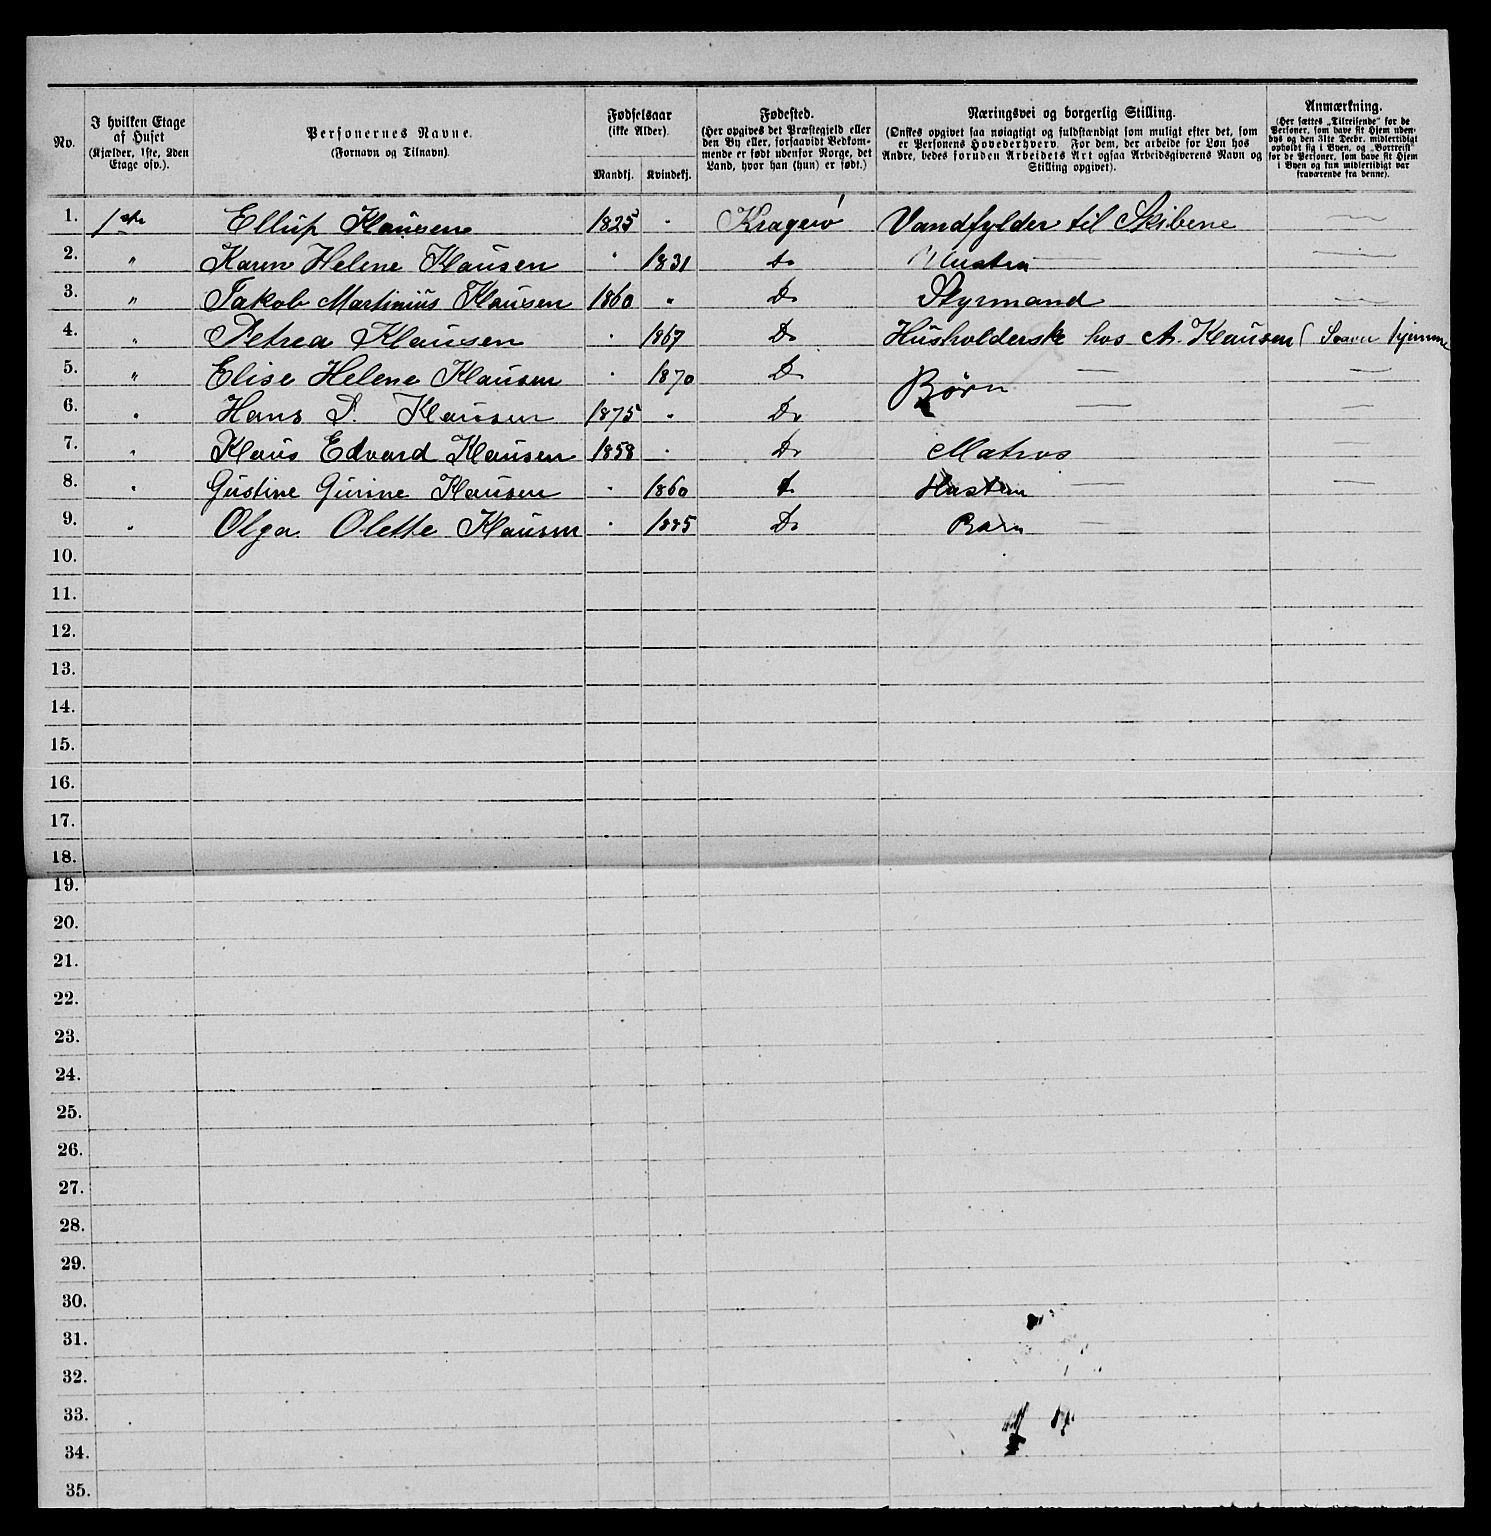 No.
I hvilken Etage af Huset (Kjælder, 1ste, 2den Etage osv.).
Personernes Navne. (Fornavn og Tilnavn).
Fødselsaar (ikke Alder). Mandkj. Kvindekj.
Fødested. (Her opgives det Præstegjeld eller den By eller, forsaavidt Vedkommende er født udenfor Norge, det Land, hvor han (hun) er født.)
Næringsvei og borgerlig Stilling. (Ønskes opgivet saa nøiagtigt og fuldstændigt som muligt efter det, som er Personens Hovederhverv. For dem, der arbeide for Løn hos Andre, bedes foruden Arbeidets Art ogsaa Arbeidsgiverens Navn og Stilling opgivet).
Anmærkning. (Her sættes „Tilreisende" for de Personer, som have sit Hjem udenbys og den 31te Decbr. midlertidigt opholdt sig i Byen, og „Bortreist" for de Personer, som have sit Hjem i Byen og kun midlertidigt var fraværende fra denne).
1. 1ste Ellup Klausen 1825 " Kragerø Vandfylder til Skibene —
2. " Karen Helene Klausen " 1831 do —
3. " Jakob Martinius Klausen 1860 " Do Styrmand —
4. " Petrea Klausen " 1867 Do Husholderske hos A. Klausen ( hjemme
5. " Elise Helene Klausen " 1870 Do Børn — —
6. " Hans P. Klausen 1875 " Do — —
7. " Klaus Edvard Klausen 1858 " Do Matros —
8. " Gustine Gurine Klausen " 1860 do Hustru — —
9. " Olga Olette Klausen " 1885 Do Barn —
10.
11.
12.
13.
14.
15.
16.
17.
18.
19.
20.
21.
22.
23.
24.
25.
26.
27.
28.
29.
30.
31.
32.
33.
34.
35.